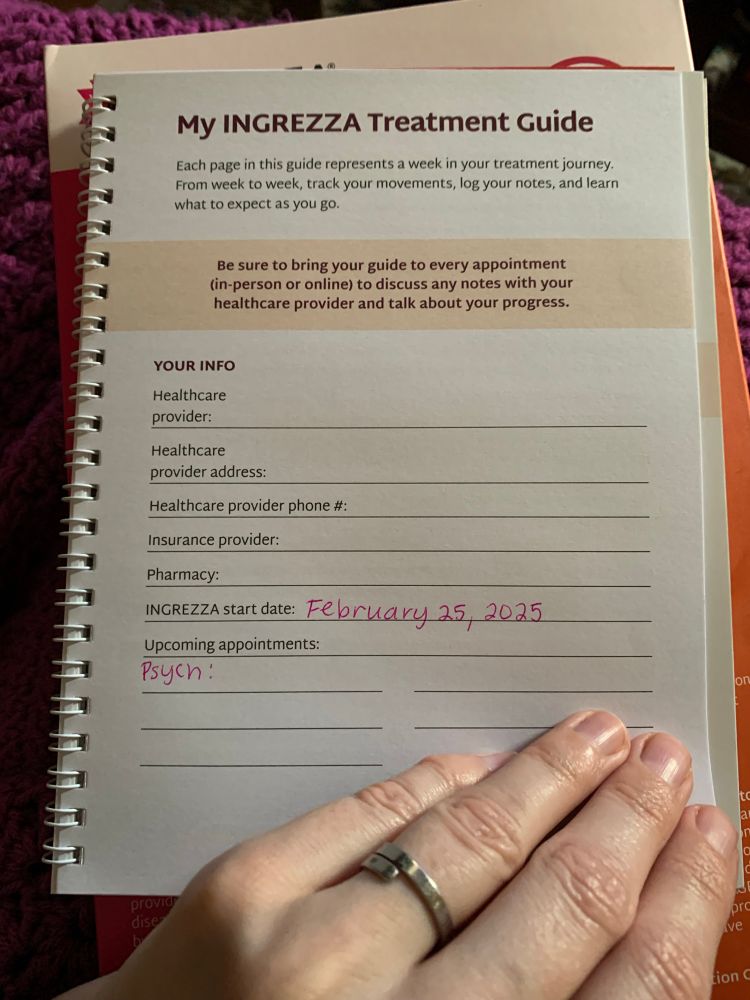 My INGREZZA Treatment Guide
Each page in this guide represents a week in your treatment journey.
From week to week, track your movements, log your notes, and learn
what to expect as you go.
Be sure to bring your guide to every appointment
(in-person or online) to discuss any notes with your
healthcare provider and talk about your progress.
YOUR INFO
Healthcare
provider:
Healthcare
provider address:
Healthcare provider phone #:
Insurance provider:
Pharmacy:
INGREZZA start date: February 25, 2025
Upcoming appointments:
Psych: